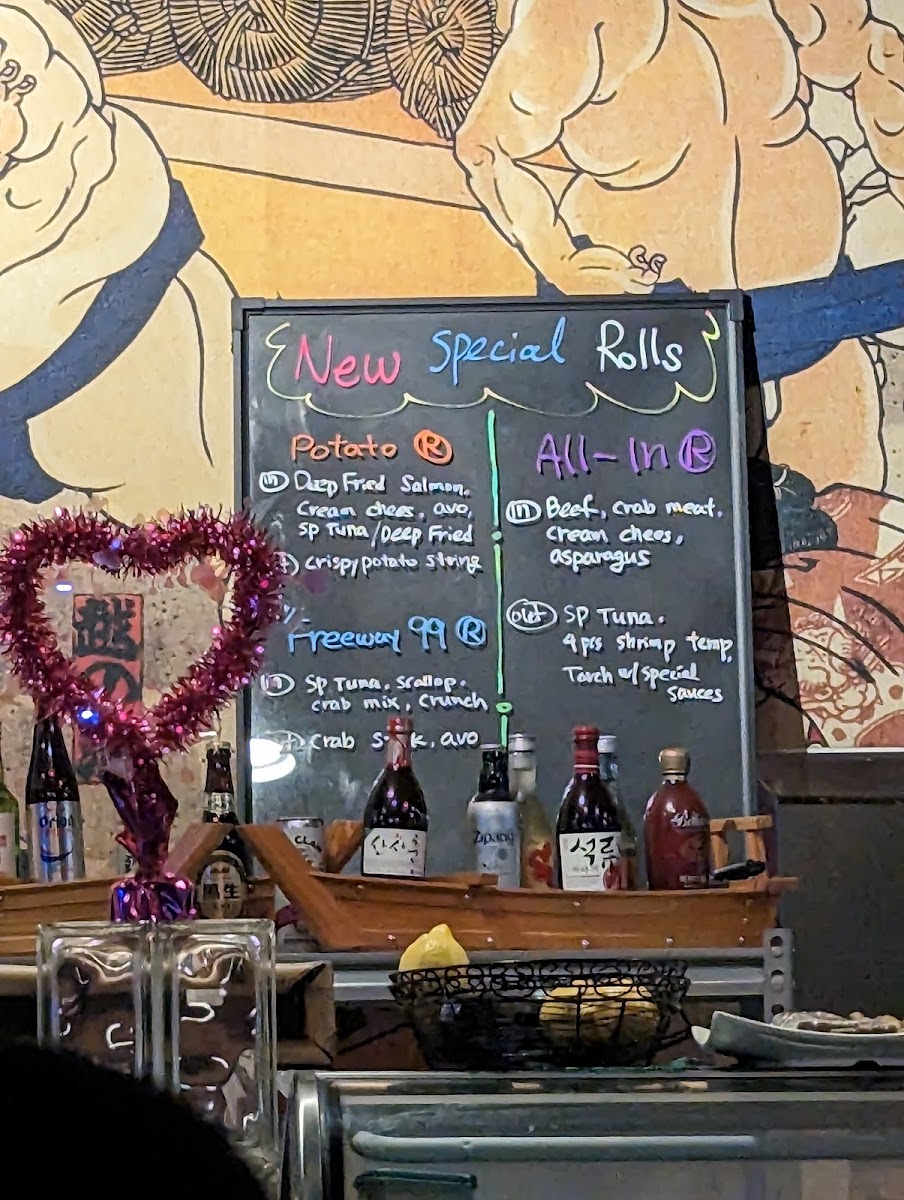 New Special Rolls
Potato Ⓡ
in Deep Fried Salmon,
Cream chees, avo,
SP Tuna/Deep Fried
crispy potato string
Freeway 99 Ⓡ
in SP Tuna, Scallop,
crab mix, crunch
crab avo
All-In Ⓡ
in Beef, crab meat,
cream chees,
asparagus
out SP Tuna,
4 pcs shrimp temp,
Torch w/ Special
Sauces
Orion
산사춘
Zipang
석류
生